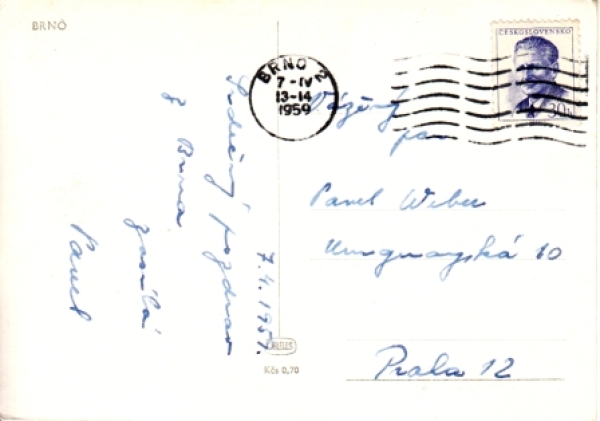 BRNO
Srdečný pozdrav
z Brna
zasílá
Pavel
7.4.1959.
BRNO 2
7-IV
13-14
1959
ČESKOSLOVENSKO
30h
Vážený
pan
Pavel Weber
Uruguayská 10
Praha 12
Kčs 0,70